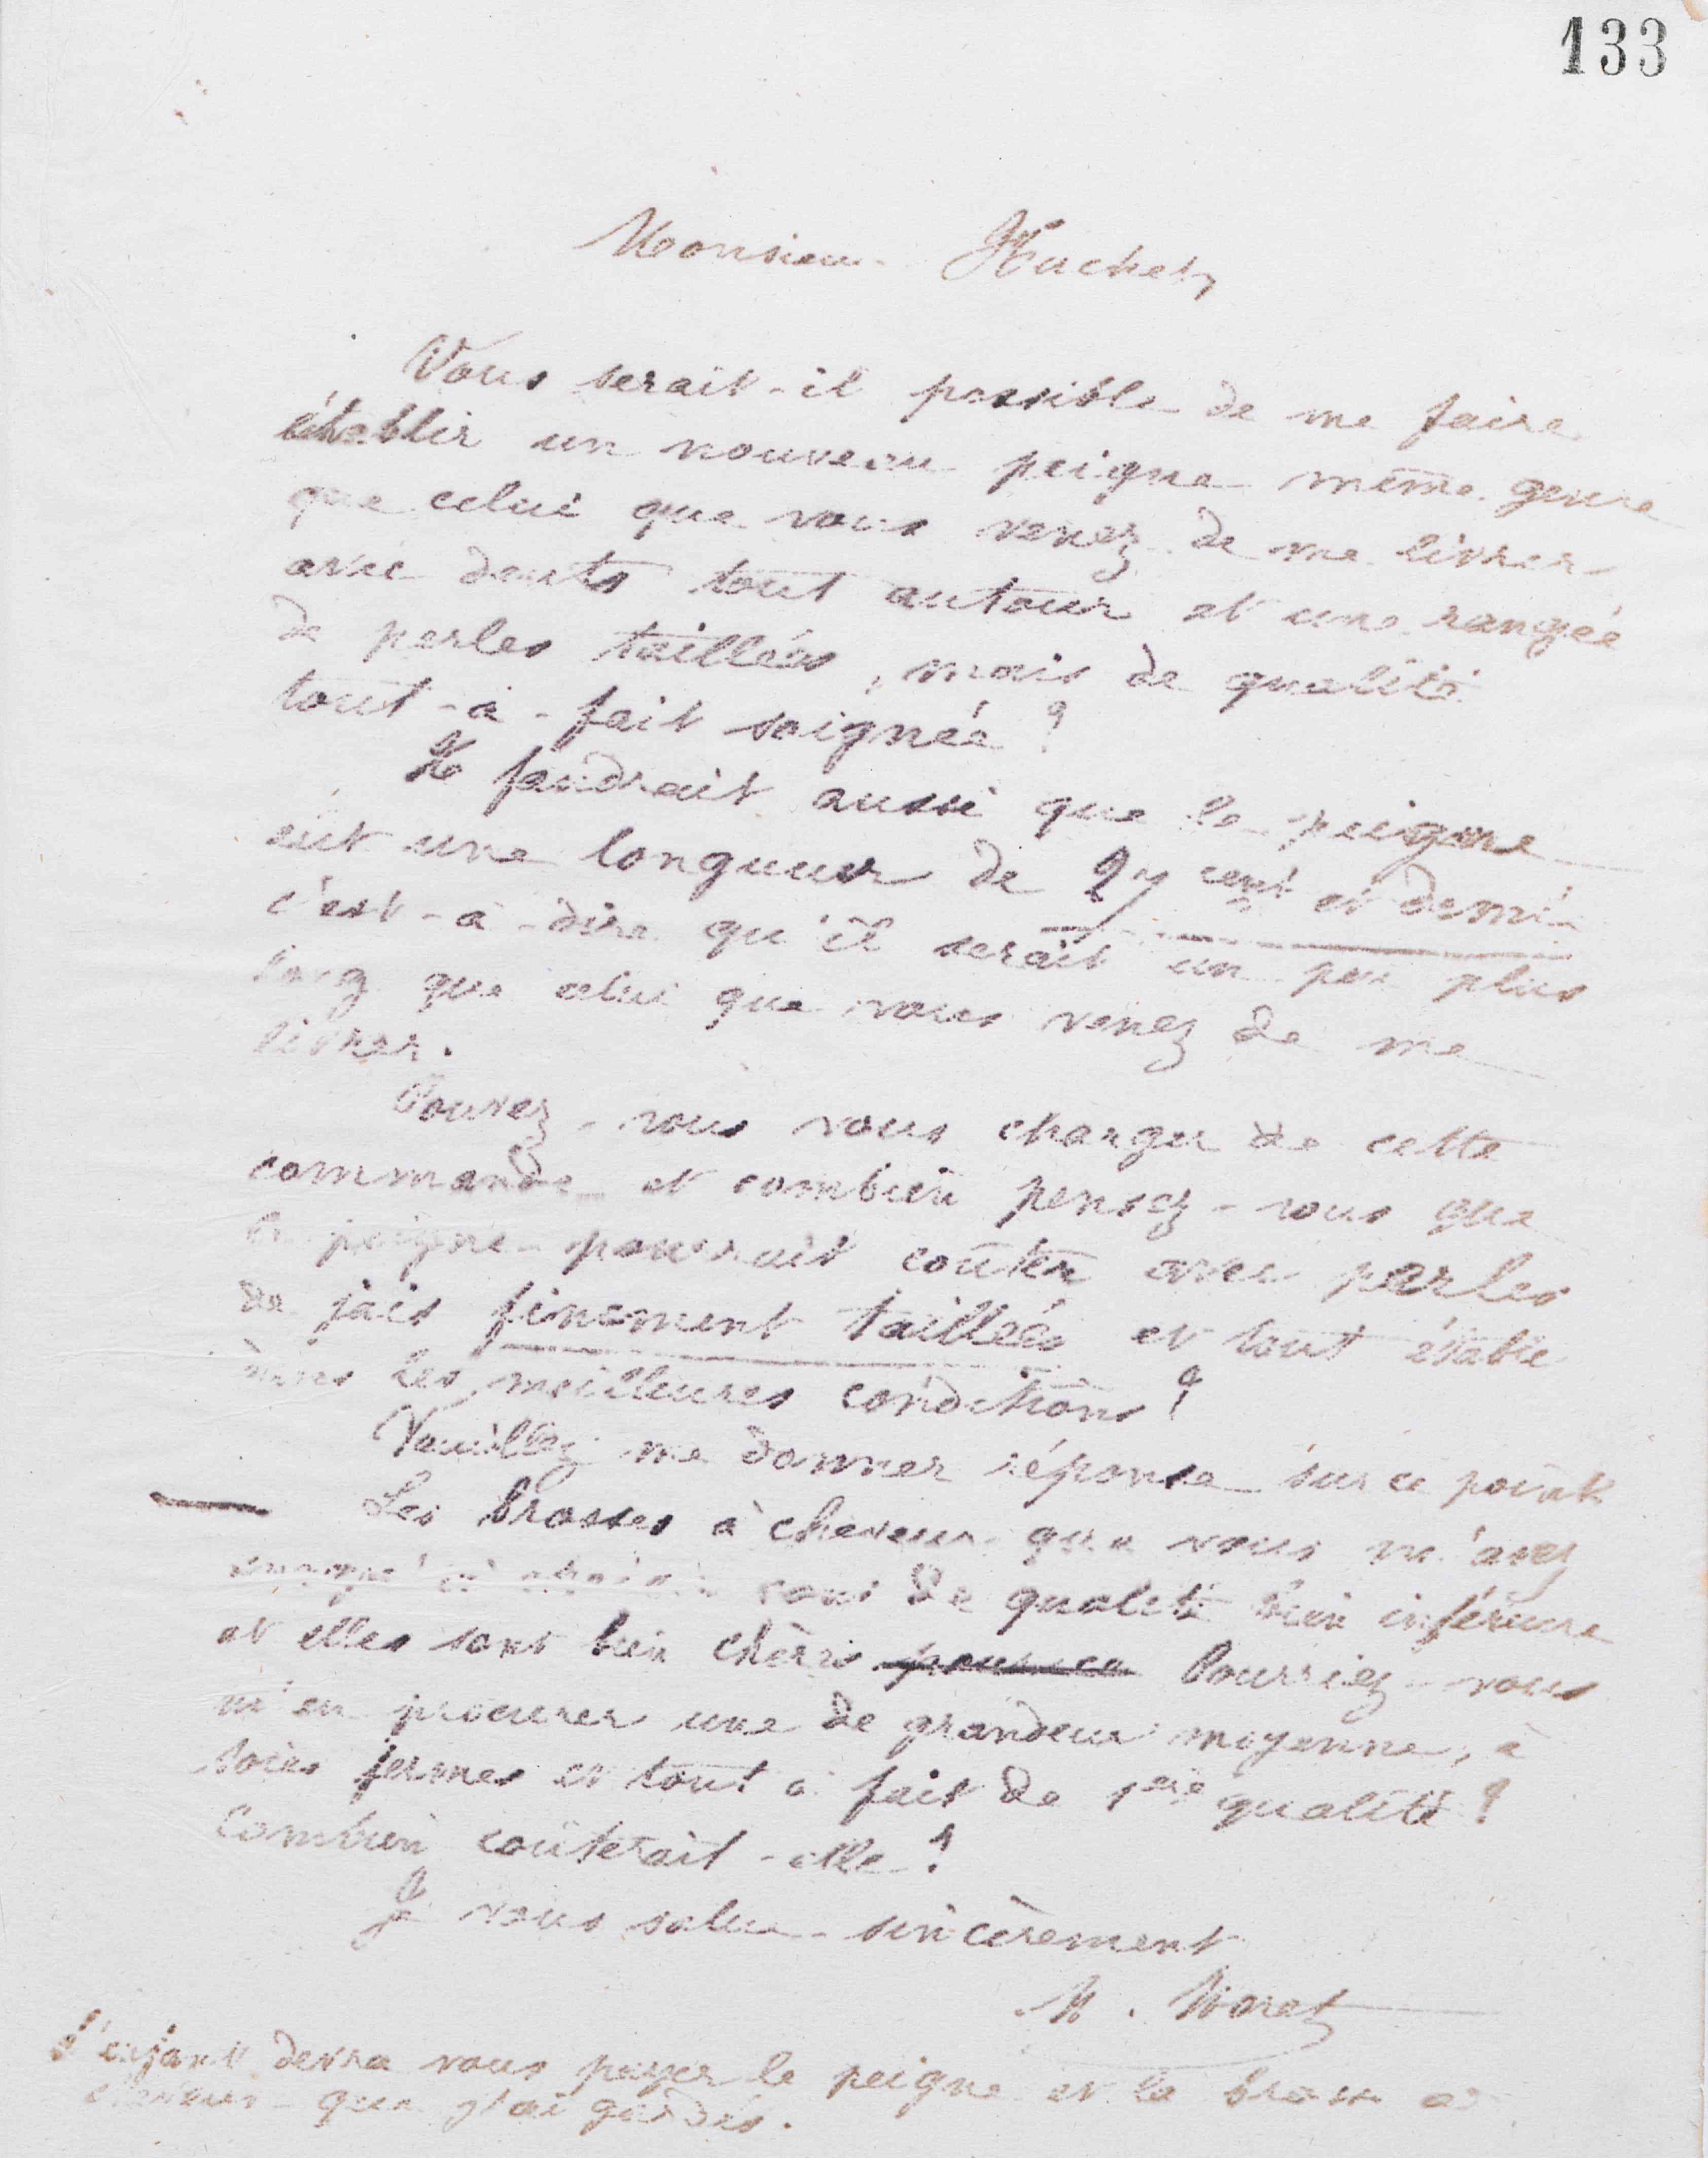 133
Monsieur Hachet,
Vous serait-il possible de me faire
établir un nouveau peigne même genre
que celui que vous venez de me livrer
avec dents tout autour et une rangée
de perles taillées, mais de qualité
tout-à-fait soignée ?
Il faudrait aussi que le peigne
eût une longueur de 27 cent et demi
c'est-à-dire qu'il serait un peu plus
long que celui que vous venez de me
livrer.
Pouvez-vous vous charger de cette
commande et combien pensez-vous que
le peigne pourrait coûter avec perles
de jais finement taillées et tout établi
dans les meilleures conditions ?
Veuillez me donner réponse sur ce point
Les brosses à cheveux que vous m'avez
envoyé à choisir sont de qualité bien inférieure
et elles sont bien chères Pourriez-vous
m'en procurer une de grandeur moyenne, à
soies fermes et tout à fait de 1ère qualité ?
Combien coûterait-elle ?
Je vous salue sincèrement
M. Moret
L'enfant devra vous payer le peigne et la brosse à
cheveux que j'ai gardés.